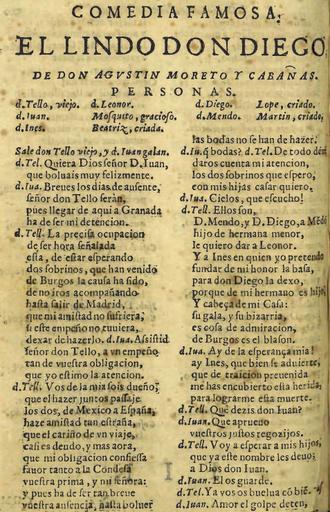 COMEDIA FAMOSA,
EL LINDO DON DIEGO
DE DON AGVSTIN MORETO Y CABAÑAS.
PERSONAS.
d.Tello, viejo. d. Leonor. d. Diego. Lope, criado.
d. Iuan. Mosquito, gracioso. d. Mendo. Martin, criado,
d. Ines. Beatriz, criada.
Sale don Tello viejo, y d. Iuan galan.
d. Tel. Quiera Dios señor D. Iuan,
que boluais muy felizmente.
d. Iua. Breues los dias de ausente,
señor don Tello seràn,
pues llegar de aqui a Granada
ha de ser mi detencion.
d. Tell. La precisa ocupacion
de ser hora señalada
esta, de estar esperando
dos sobrinos, que han venido
de Burgos la causa ha sido,
de no iros acompañando
hasta salir de Madrid,
que mi amistad no sufriera,
si este empeño no tuuiera,
dexar de hazerlo. d. Iua. Assistid
señor don Tello, a vn empeño
tan de vuestra obligacion,
que yo estimo la atencion.
d. Tell. Vos de la mia sois dueño,
que el hazer juntos passaje
los dos, de Mexico a España,
haze amistad tan estraña,
que el cariño de vn viaje,
casi es deudo, y mas aora,
que mi obligacion confiessa
fauor tanto a la Condesa
vuestra prima, y mi señora:
y pues ha de ser tan breue
vuestra ausencia, hasta boluer
las bodas no se han de hazer.
d. Iu. q̃ bodas? d. Tel. De todo deuo
daros cuenta mi atencion,
los dos sobrinos que espero,
con mis hijas casar quiero,
d. Iua. Cielos, que escucho!
d. Tell. Ellos son,
D. Mendo, y D. Diego, a Mendo
hijo de hermana menor,
le quiero dar a Leonor.
Y a Ines en quien yo pretendo
fundar de mi honor la basa,
para don Diego la dexo,
porque de mi hermano es hijo
Y cabeça de mi Casa:
su gala, y su bizarria,
es cosa de admiracion,
de Burgos es el blason.
d. Iua. Ay de la esperança mia!
ay Ines, que bien se aduierte,
que de traicion preuenida
me has encubierto esta herida,
para lograrme esta muerte.
d. Tell. Que dezis don Iuan?
d. Iuan. Que aprueuo
vuestros justos regozijos.
d. Tell. Voy a esperar a mis hijos,
que ya este nombre les deuo;
a Dios don Iuan.
d. Iuan. El os guarde.
d. Tel. Ya vos os buelua cõ biẽ.
d. Iuan. Amor el golpe deten,